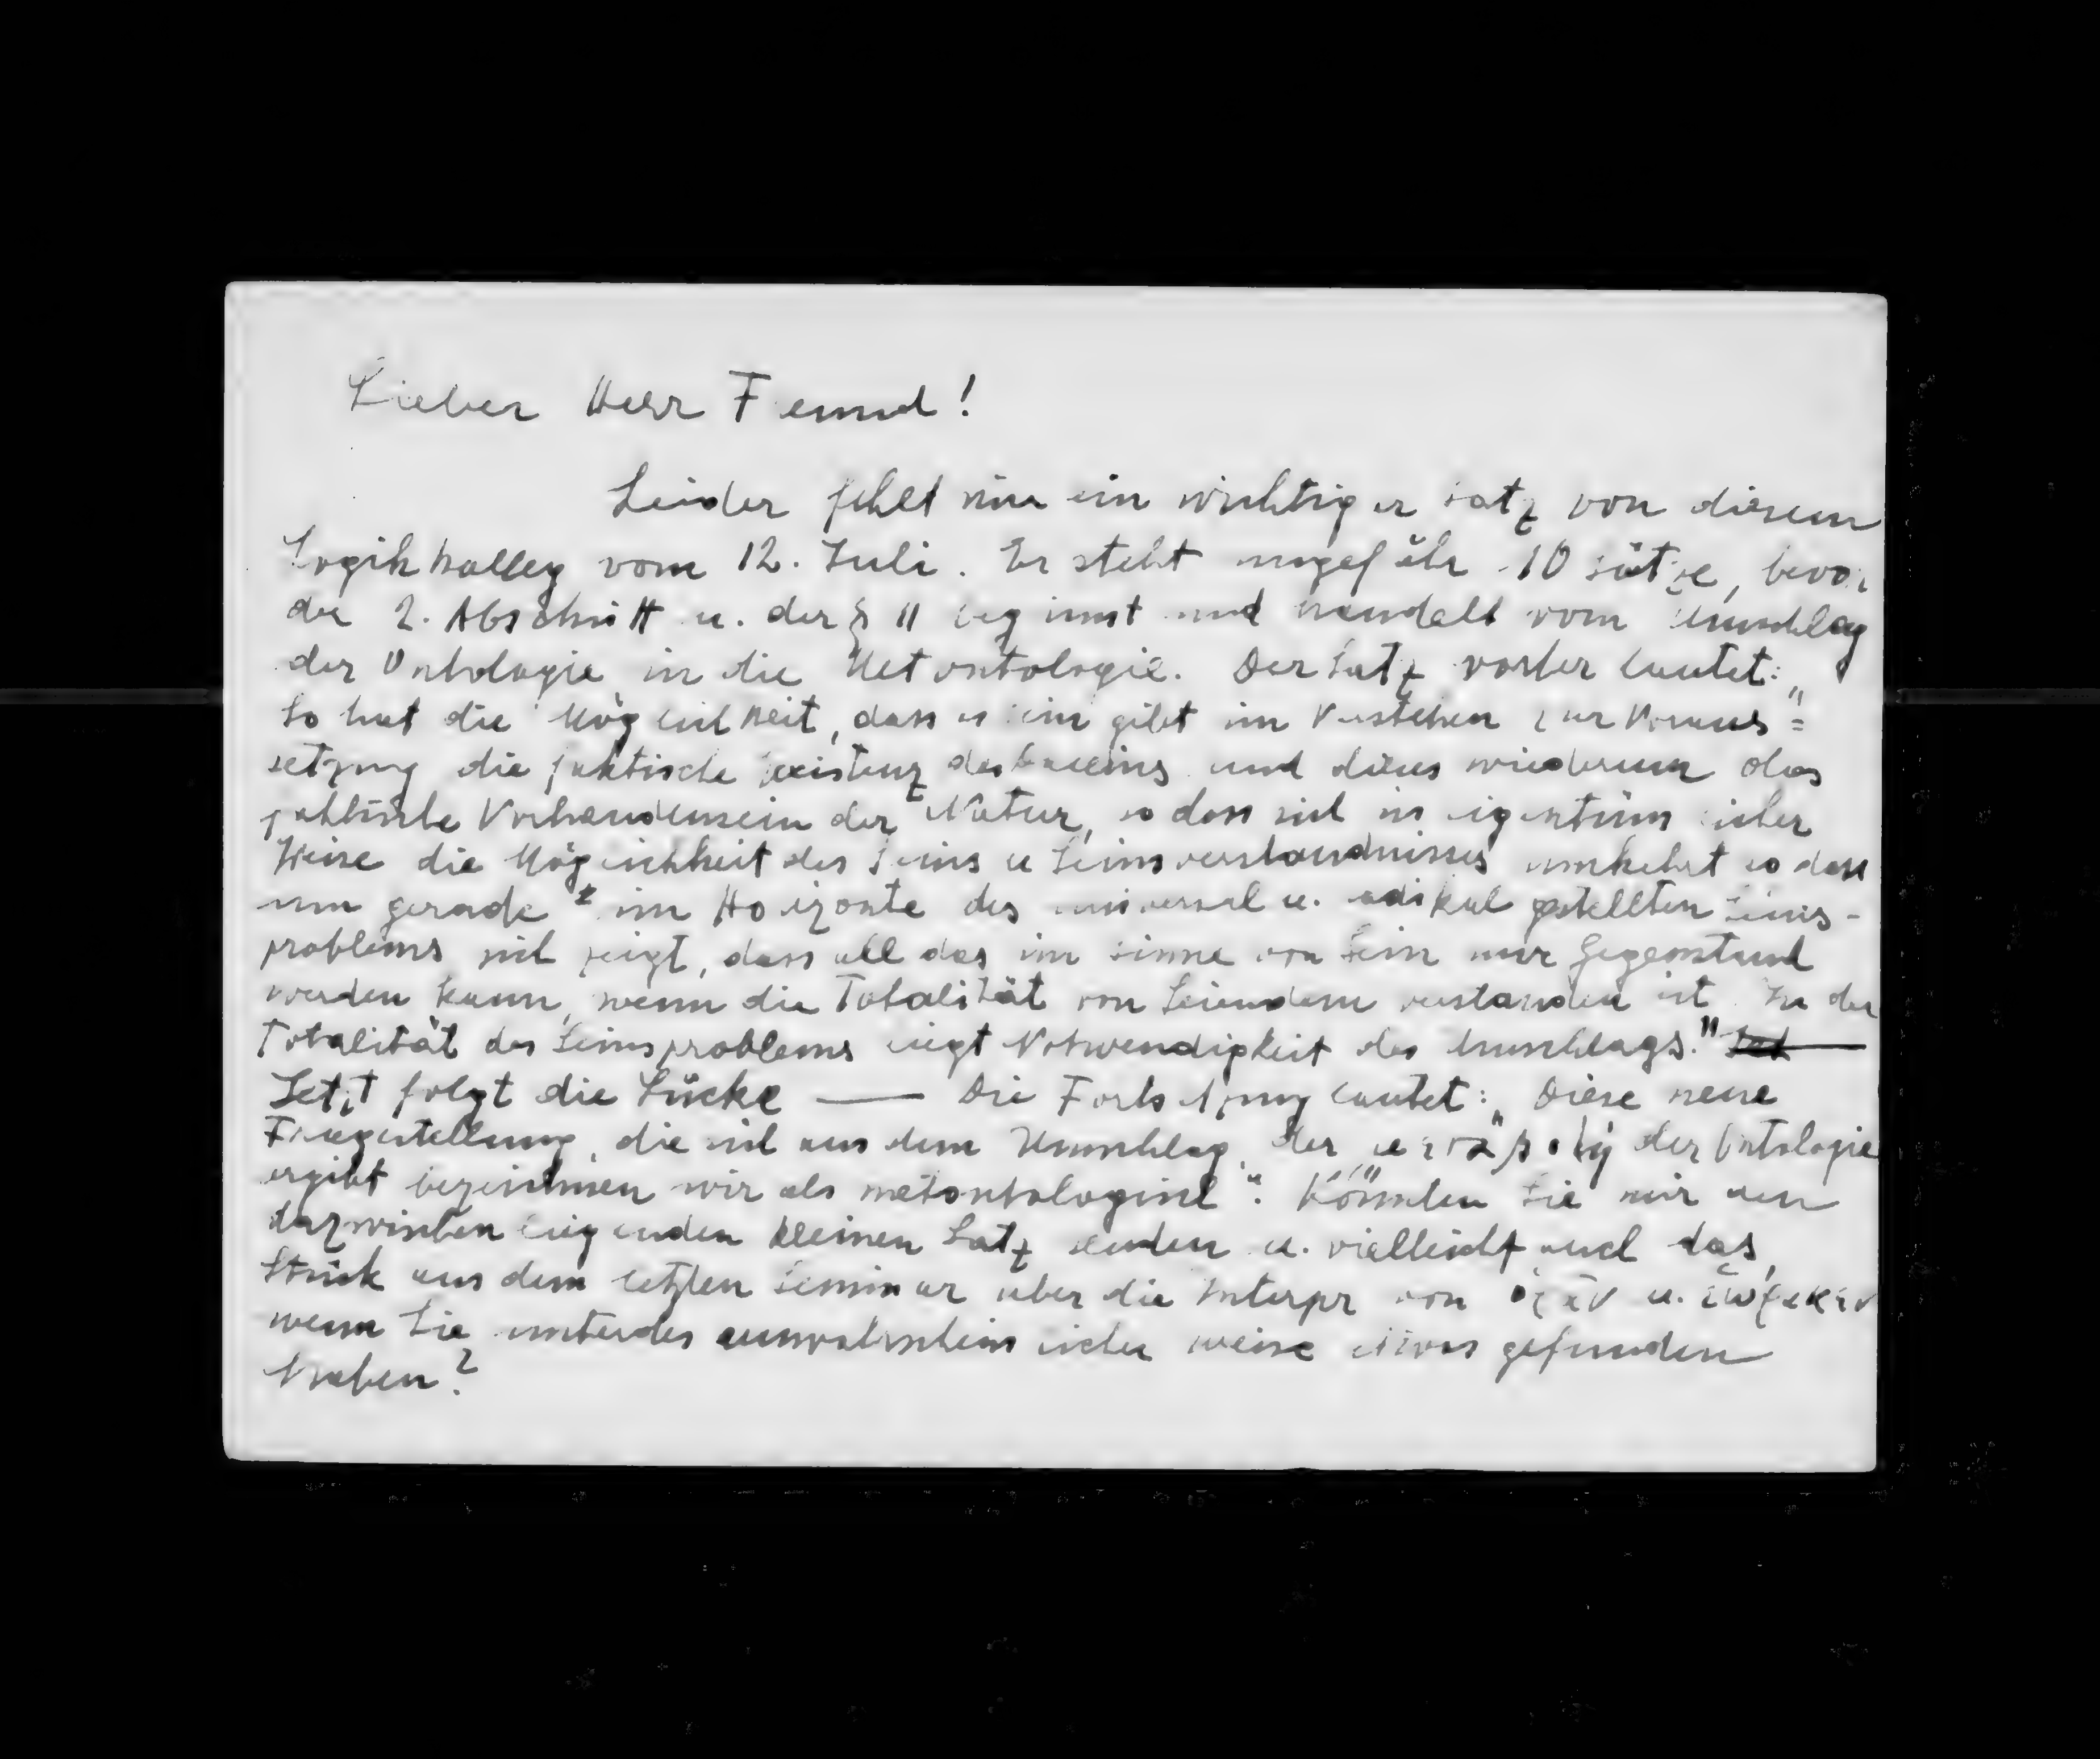 Lieber Herr Freund!
Leider fehlt mir ein wichtiger Satz von diesem
Logikkolleg vom 12. Juli. Er steht ungefähr 10 Sätze, bevor
der 2. Abschnitt u. der § 11 beginnt und handelt vom Umschlag
der Ontologie in die Metontologie. Der Satz vorher lautet: „
So hat die Möglichkeit, dass es Sein gibt im Verstehen zur Voraus=
setzung die faktische Existenz des Daseins und dieses wiederum das
faktische Vorhandensein der Natur, so dass sich in eigentümlicher
Weise die Möglichkeit des Seins u Seinsverständnisses umkehrt so dass
nun gerade im Horizonte des universal u. radikal gestellten Seins-
problems sich zeigt, dass all das im Sinne von Sein nur Gegenstand
werden kann, wenn die Totalität von Seiendem verstanden ist. In der
Totalität des Seinsproblems liegt Notwendigkeit des Umschlags."
Jetzt folgt die Lücke — Die Fortsetzung lautet: „Diese neue
Fragestellung, die sich aus dem Umschlag, der der Ontologie
ergibt bezeichnen wir als metontologisch". Könnten Sie mir den
dazwischen liegenden kleinen Satz senden u. vielleicht auch das
Stück aus dem letzten Seminar über die Interpr von u.
wenn Sie unterdes unwahrscheinlicher weise etwas gefunden
haben?